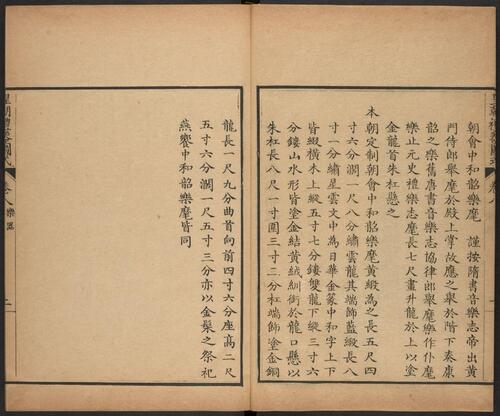 朝會中和韶樂麾 謹按隋書音樂志帝出黃
門侍郎舉麾於殿上掌故應之舉於階下奏康
韶之樂舊唐書音樂志協律郎舉麾樂作仆麾
樂止元史禮樂志麾長七尺畫升龍於上以塗
金龍首朱杠懸之
本朝定制朝會中和韶樂麾黃緞為之長五尺四
寸六分濶一尺八分繡雲龍其端飾藍緞長八
寸一分繡星雲文中為日華金篆中和字上下
皆綴橫木上縱五寸七分鏤雙龍下縱三寸六
分鏤山水形皆塗金結黃絨紃銜於龍口懸以
朱杠長八尺一寸圍三寸二分杠端飾塗金銅
龍長一尺九分曲首向前四寸六分座高二尺
五寸六分濶一尺五寸三分亦以金髹之祭祀
燕饗中和韶樂麾皆同
卷八 樂器